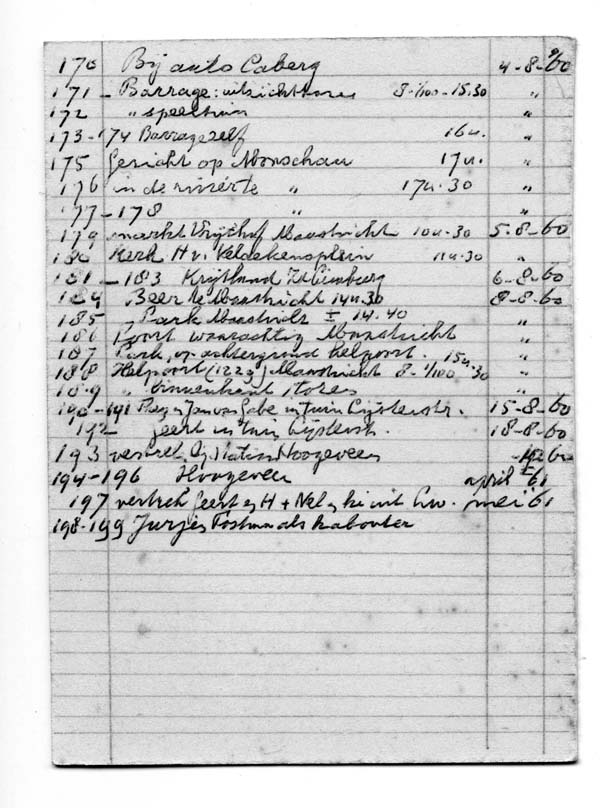 170 Bij auto Caberg 4-8-60
171 - Barrage: uitzichttoren 8-1/100-15.30 "
172 " speeltuin "
173-174 Barrage zelf 16u. "
175 Gezicht op Monschau 17u. "
176 in de " 17u.30 "
177-178 " "
179 markt Vrijthof Maastricht 10u.30 5-8-60
180 Kerk H v. 11u.30 "
181-183 Krijtland Z Limburg 6-8-60
184 Beer Maastricht 14u.30 8-8-60
185 Park Maastricht ± 14.40 "
186 Poort Maastricht "
187 Park, op achtergrond helpoort. 15u. "
188 Helpoort (1229) Maastricht 8-1/100 30 "
189 " binnenkant "
190-191 Jan van in tuin 15-8-60
192 Geert in tuin 18-8-60
193 vertrek Hoogeveen
194-196 Hoogeveen april '61
197 vertrek Geert en H + Nel uit mei '61
198-199 Jurjen als kabouter